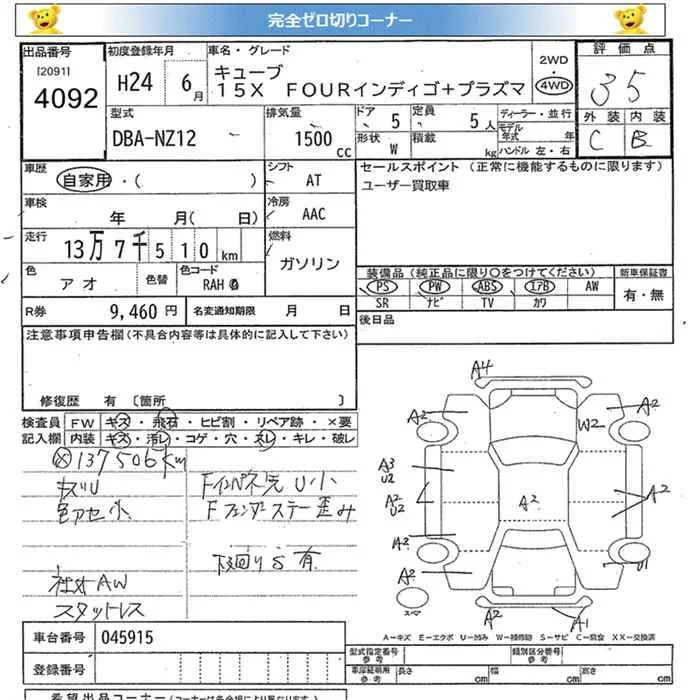 完全ゼロ切りコーナー
出品番号
[2091]
4092
初度登録年月
H24 6月
車名・グレード
キューブ
15X FOURインディゴ+プラズマ
2WD
4WD
評価点
35
外装 内装
C B
型式
DBA-NZ12
排気量
1500 cc
ドア 5
定員 5人
形状 W
積載 kg
ディーラー・並行
モデル年式 年
ハンドル 左・右
車歴
自家用・( )
シフト
AT
車検
年 月( 日)
冷房
AAC
走行
13万7千510km
燃料
ガソリン
色
アオ
色替
色コード
RAH
R券 9,460円
名変通知期限 月 日
セールスポイント (正常に機能するものに限ります)
ユーザー買取車
装備品(純正品に限り○をつけてください)
PS PW ABS エアB AW
SR ナビ TV カワ
新車保証書
有・無
後日品
注意事項申告欄(不具合内容等は具体的に記入して下さい)
修復歴 有 〔箇所 〕
検査員記入欄
FW キズ・飛石・ヒビ割・リペア跡・×要
内装 キズ・汚レ・コゲ・穴・スレ・キレ・破レ
137506km
キズU
色アセ小
社外AW
スタットレス
Fインパネ先U小
Fフェンダーステー歪み
下廻りS有
A4
A2
A2
W2
A3
U2
A2
U2
A2
A2
A2
A2
U1
A2
A2
A1
スペア
A-キズ E-エクボ U-凹み W-補修跡 S-サビ C-腐食 XX-交換済
車台番号 045915
登録番号
型式指定番号 参考
類別区分番号 参考
車庫証明用 参考
長さ cm
幅 cm
高さ cm
希望出品コーナー